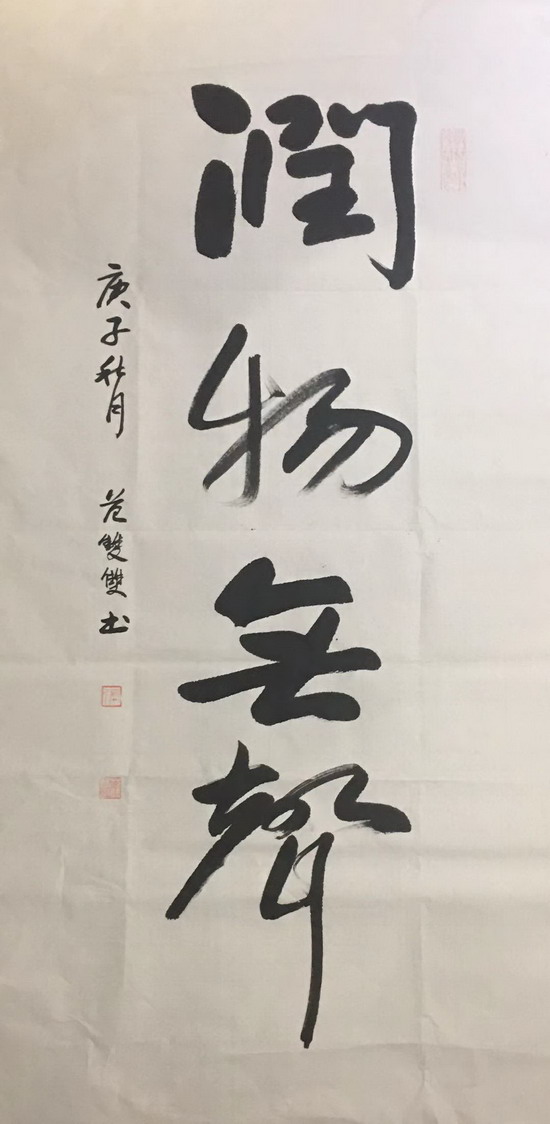 潤物無聲
庚子秋月 范雙雙书